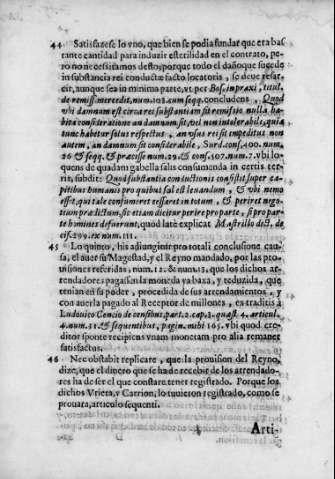 44 Satisfazese lo vno, que bien se podia fundar que era bas
tante cantidad para induzir esterilidad en el contrato, pe-
ro no necessitamos desto, porque todo el dañoque sucede
in substancia rei conductæ facto locatoris, se deue resar-
cir, aunque sea in minima parte, vt per Bos. in praxi, titul.
de remiss. merced it, num. 102. cum seqq. concludens, Quod
vbi damnum est circa rei substantiam sit remissio nulla ha
bita consideratione an damnum sit, vel non intolerabile, quia
tunc habetur solus respectus, an vsus rei sit impeditus non
autem, an damnum sit considerabile, Surd. conf. 100. num.
26 & seqq. & præcisse num. 29. & conf. 307. num. 7. vbi lo-
quens de quadam gabella salis consumenda in certis ter-
ris, subdit: Quod substantia conductionis consistit super ca-
pitibus humanis pro quibus sal est leuandum, & vbi nemo
esset, qui tale consumeret cessaret in totum, & periret nego-
tium prædictum, sic etiam dicitur perire pro parte, si pro par-
te homines desuerunt, quod latè explicat Mastrillo dict. de
cis. 299. ex num. 111.
45 Lo quinto, his adiungitur pro totali conclusione cau-
sa, el auer su Magestad, y el Reyno mandado, por las pro-
uisiones referidas, num. 12. & num. 13. que los dichos ar-
rendadores pagassen la moneda ya baxa, y reduzida, que
tenian en su poder, procedida de sus arrendamientos, y
con auerla pagado al Receptor de millones, ex traditis à
Ludouico Cencio de censibus, part. 2. cap. 3. quæst. 4. articul.
4. num. 31. & sequentibus, pagin. mibi 165. vbi quod cre-
ditor sponte recipiens vnam monetam pro alia remanet
satisfactus.
46 Nec obstabit replicare, que la prouision del Reyno,
dize, que el dinero que se ha de recebir de los arrendado-
res ha de ser el que constare tener registrado. Porque los
dichos Vrieta, y Carrion, lo tuuieron registrado, como se
prouara, articulo sequenti.
Arti-